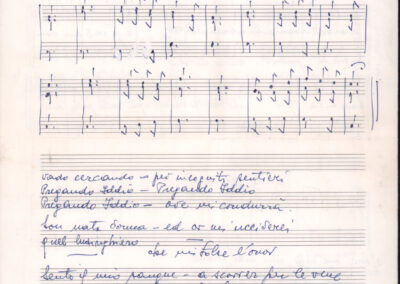 vado cercando – per incogniti sentieri
Pregando Iddio – Pregando Iddio
Pregando Iddio – ove mi condurrà
Son nata donna – ed or mi ucciderei
quell lusinghiero
che mi tolse l'onor
Sento il mio sangue – a scorrer per le vene